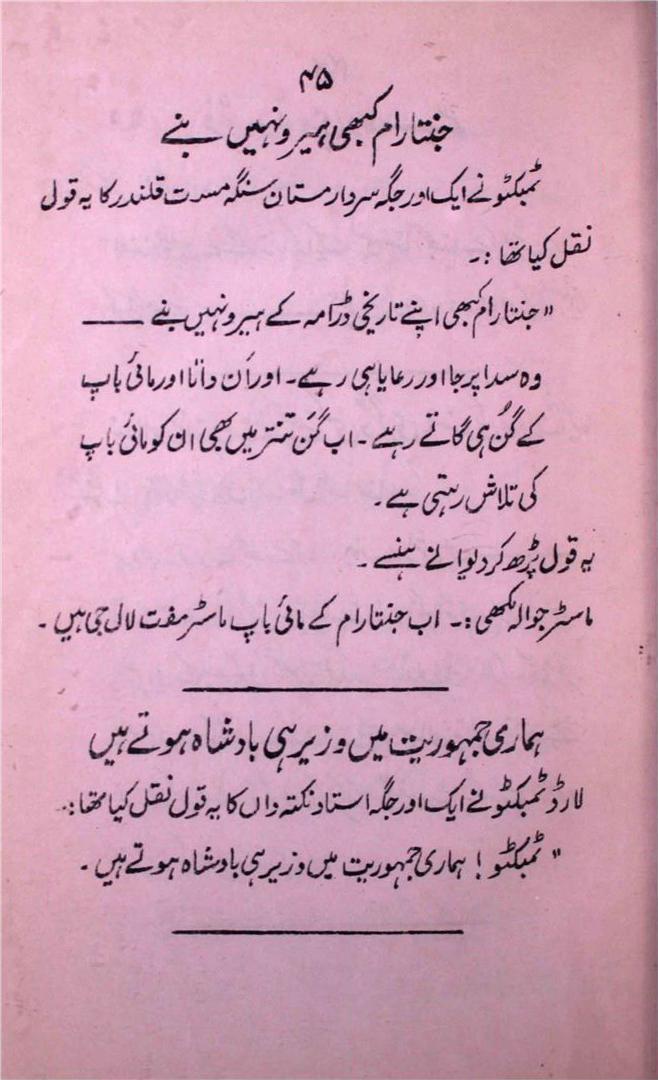 ۴۵
جنتا رام کبھی ہیرو نہیں بنے
ٹمبکٹو نے ایک اور جگہ سردار مستان سنگھ مست قلندر کا یہ قول
نقل کیا تھا :۔
"جنتا رام کبھی اپنے تاریخی ڈرامہ کے ہیرو نہیں بنے ——
وہ سدا پرجا اور رعایا ہی رہے۔ اور اَن داتا اور مائی باپ
کے گُن ہی گاتے رہے۔ اب گَن تنتر میں بھی ان کو مائی باپ
کی تلاش رہتی ہے۔
یہ قول پڑھ کر دیوانے ہنسے۔
ماسٹر جوالہ مکھی :۔ اب جنتا رام کے مائی باپ ماسٹر مفت لال جی ہیں۔
ہماری جمہوریت میں وزیر ہی بادشاہ ہوتے ہیں
لارڈ ٹمبکٹو نے ایک اور جگہ استاد نکتہ داں کا یہ قول نقل کیا تھا :۔
"ٹمبکٹو ! ہماری جمہوریت میں وزیر ہی بادشاہ ہوتے ہیں۔